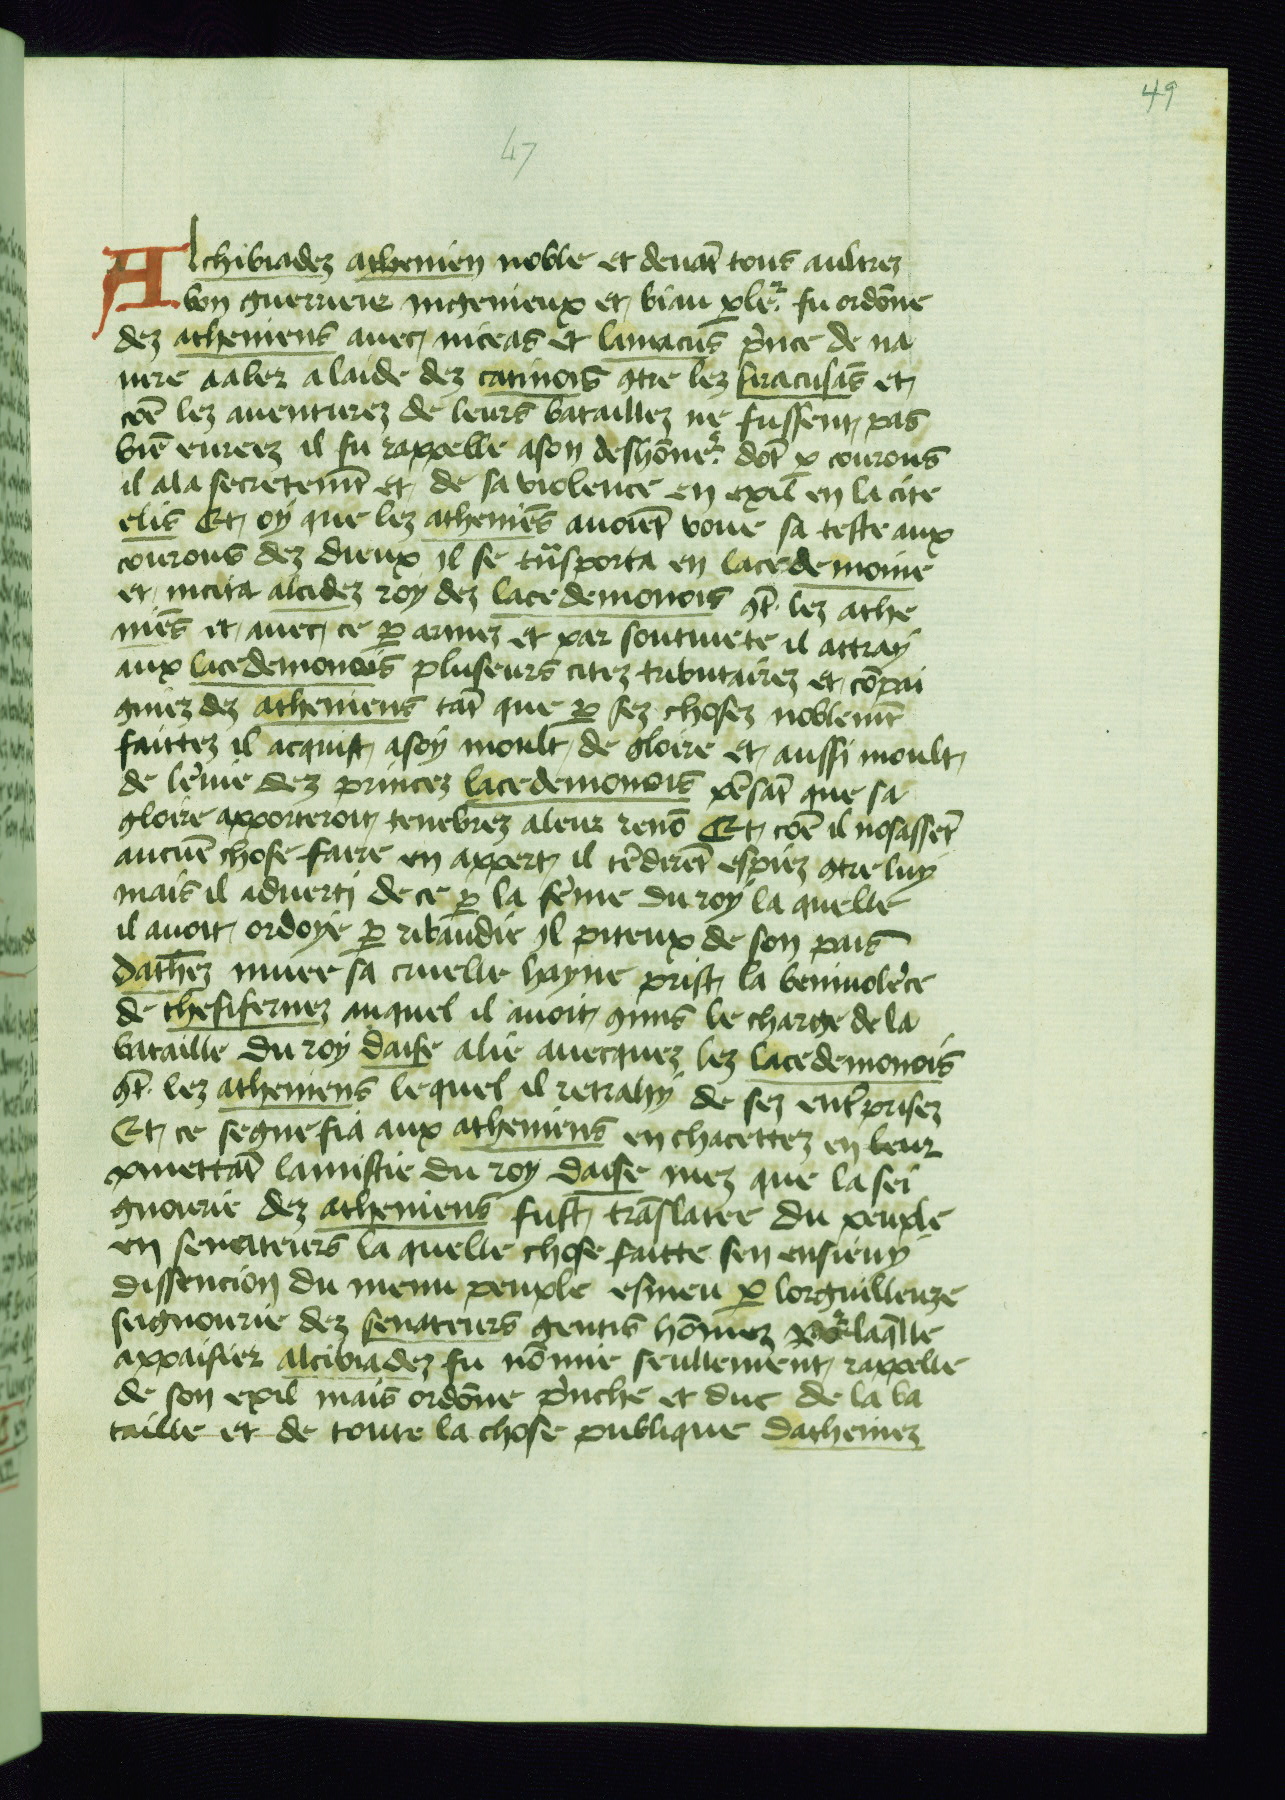 49
47
Alchibiadez athenien noble et deuāt tous aultrez
bon guerrierr ingenieux et biau ꝑler fu ordōne
dez atheniens auec niceas et lamacus pͥnce de na
uire a aler a laide dez catinois ꝯtre lez siracusās et
cōe lez auenturez de leurs bataillez ne fussent pas
biē eureez il fu rappelle a son deshōner dōt ꝑ courous
il ala secretemt et de sa violence en exil en la cite
elis Et oy que lez atheniēs auoiēt voue sa teste aux
courous dez dieux il se trāsporta en lacedemoine
et incita alcidez roy dez lacedemonois ꝯt lez athe
niēs et auec ce ꝑ armez et par soutiuete il attray
aux lacedemonois pluseurs citez tributairez et cōpai
gniez dez atheniens tāt que ꝑ sez chosez noblemt
faittez il acquist a soy moult de gloire et aussi moult
de lēuie dez princez lacedemonois pēsāt que sa
gloire apporteroit tenebrez a leur renō Et cōe il nosassēt
aucūe chose faire en appert il tēdirēt espiez ꝯtre luy
mais il aduerti de ce ꝑ la fēme du roy la quelle
il auoit ordoye ꝑ ribaudie il piteux de son pais
dathēz muee sa cruelle hayne prist la beniuolēce
de thesifernez auquel il auoit ꝯmis le charge de la
bataille du roy daise alie auecquez lez lacedemonois
ꝯt lez atheniens lequel il retrahy de sez entͬprisez
Et ce segnefia aux atheniens en chacettez en leur
ꝓmettāt lamistie du roy daise mez que la sei
gnourie dez atheniens fust trāslatee du peuple
en senateurs la quelle chose faitte sen ensieuy
dissencion du menu peuple esmeu ꝑ lorguilleuze
seignourie dez senateurs gentis hōmez por laqlle
appaisier alcibiadez fu nōmie seullement rappelle
de son exil mais ordōne pͥnche et duc de la ba
taille et de toute la chose publique dathenez